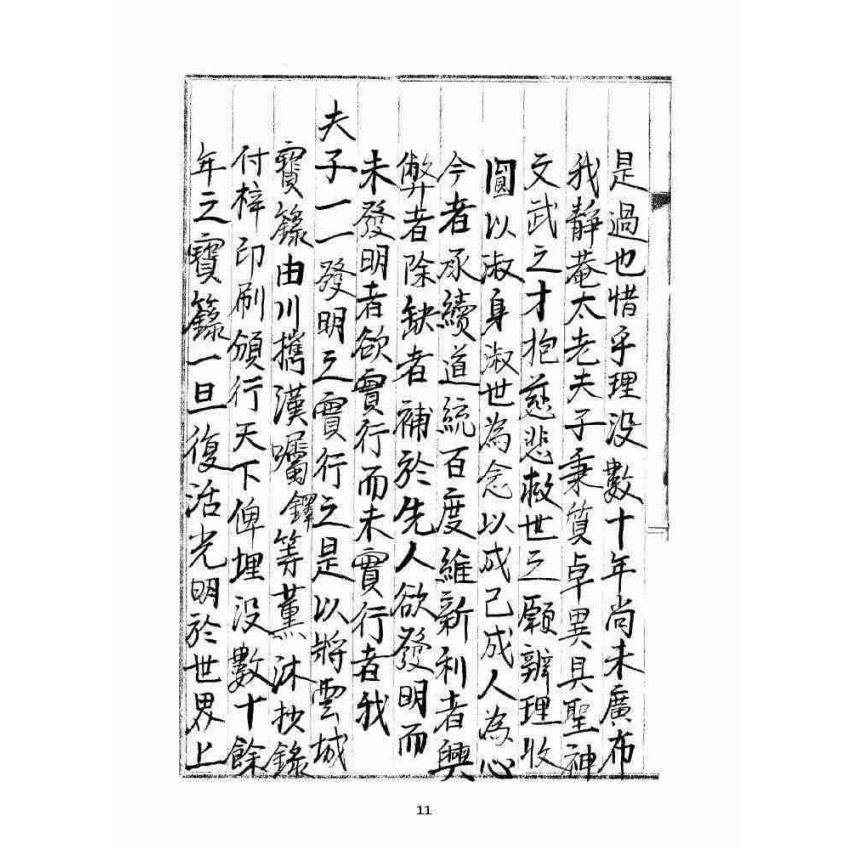 是過也惜乎理没數十年尚未廣布
我靜菴太老夫子秉質卓異具聖神
文武之才抱慈悲救世之願辦理收
圓以淑身淑世為念以成己成人為心
今者承續道統百度維新利者興
弊者除缺者補於先人欲發明而
未發明者欲實行而未實行者我
夫子一一發明之實行之是以將雲城
寶籙由川攜漢囑鐸等薰沐抄錄
付梓印刷頒行天下俾埋没數十餘
年之寶籙一旦復活光明於世界上
11